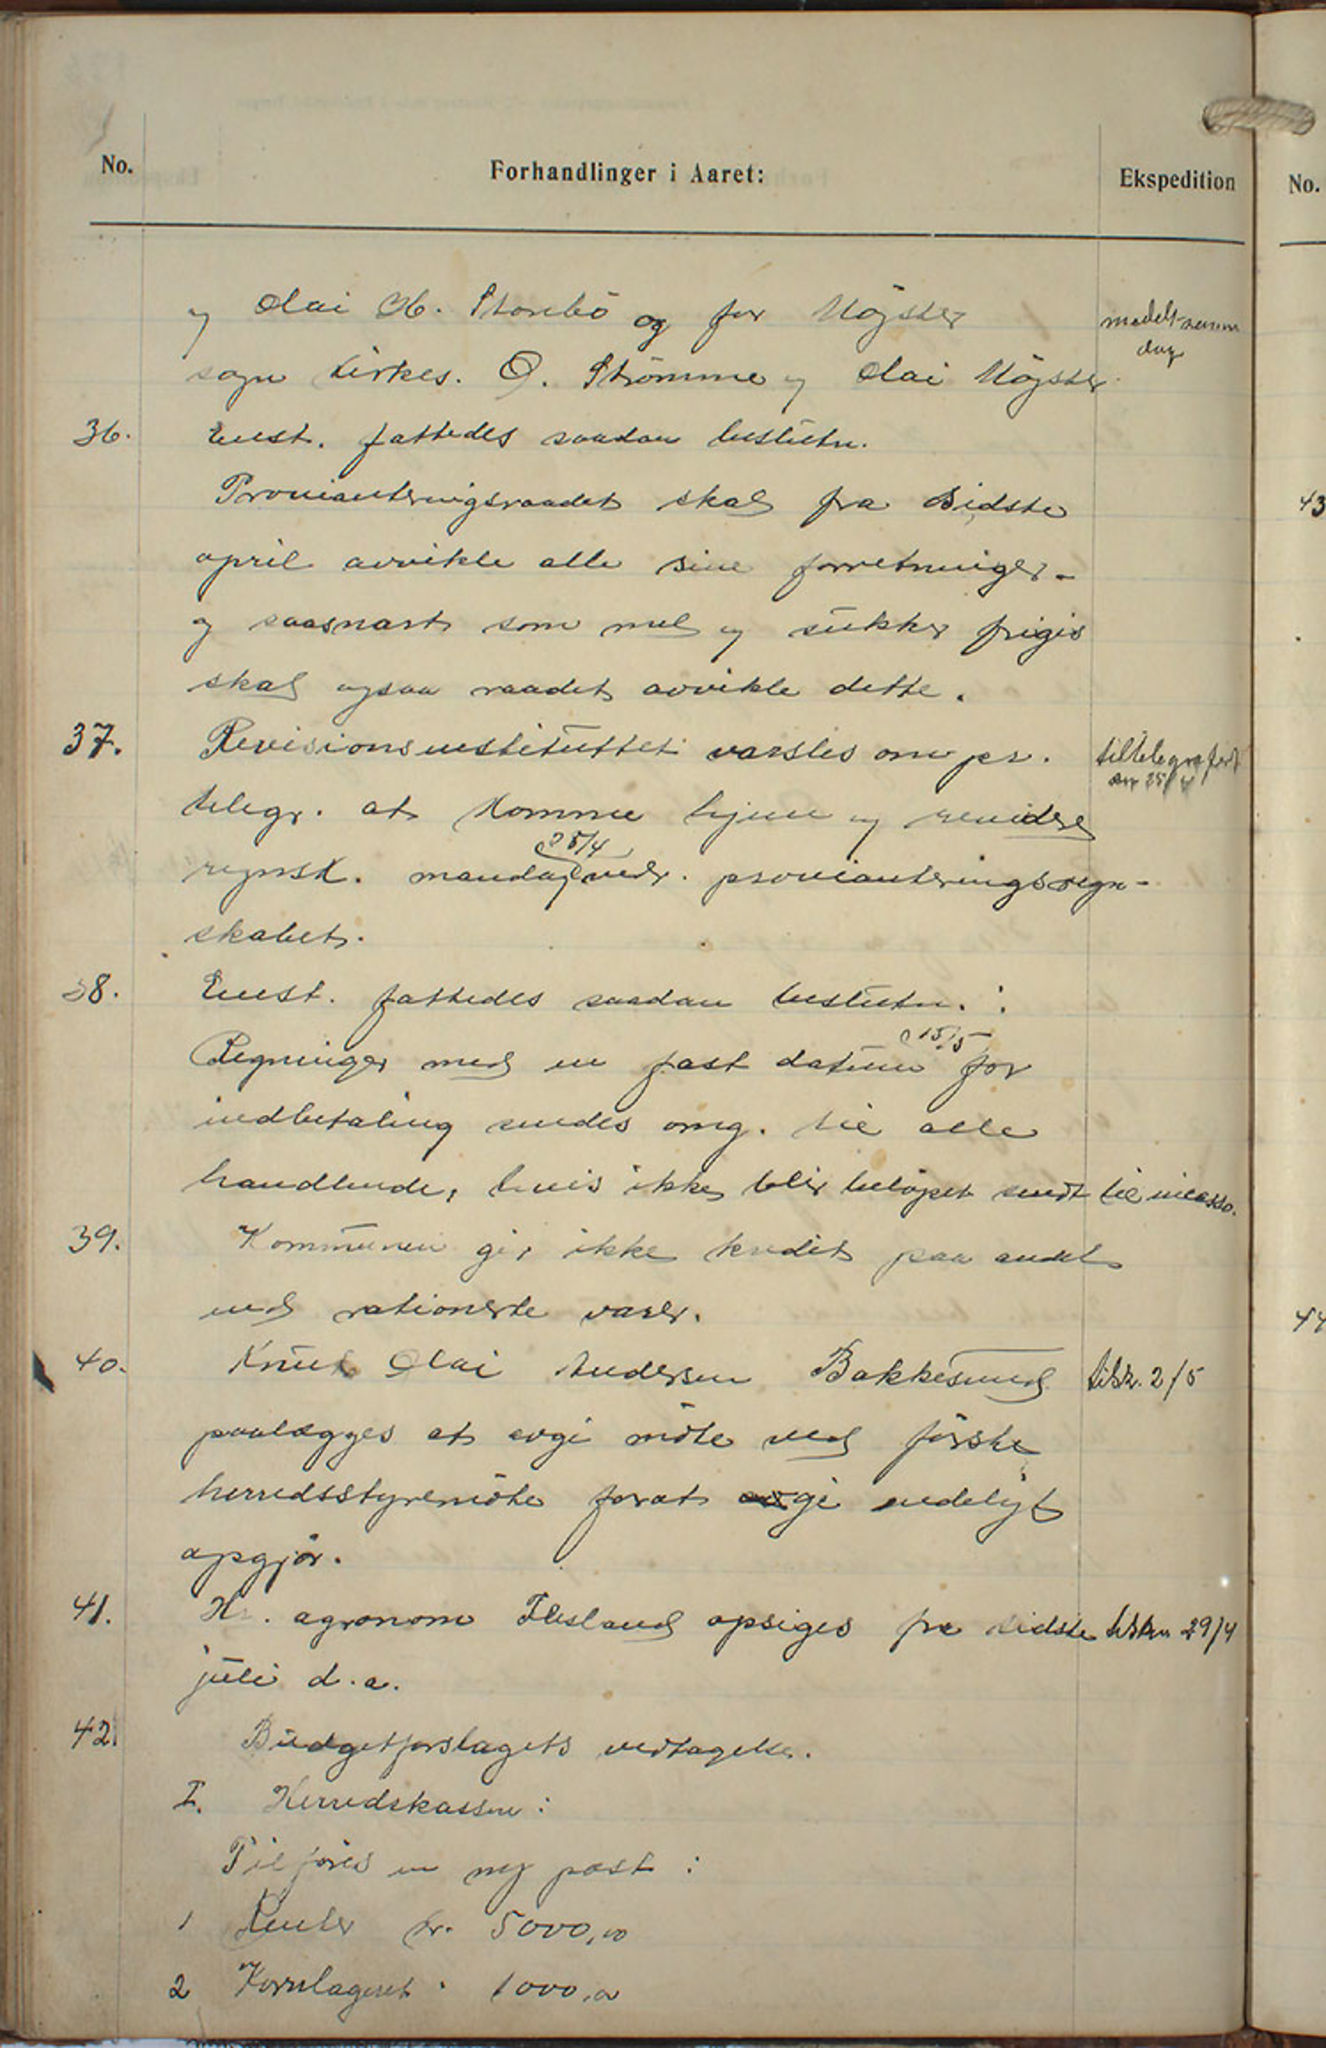 No. Forhandlinger i Aaret: Ekspedition No.
og Olai H. Storebö og for Møgster
medelt samme
dag
sogn kirkes. O. Strömme og Olai Møgster
36. Enst. fattedes saadan beslutn.
Provianteringsraadet skal fra sidste
43
april avvikle alle sine forretninger -
og saasnart som mel og sukker frigis
skal ogsaa raadet avvikle dette.
37. Revisionsinstituttet varsles om pr.
tiltelegrafert
25/4
telegr. at komme hjem og revidere
25/4
regnsk. mandag vedr. provianteringsregn-
skabet.
38. Enst. fattedes saadan beslutn. :
15/5
Regninger med en fast datum for
indbetaling sendes omg. til alle
handlende, hvis ikke blir beløpet sendt til incasso.
39. Kommunen gir ikke kredit paa andet
end rationerte varer.
44
40. Knut Olai Andersen Bakkesund tilskr. 2/5
paalægges at avgi möte ved förste
herredsstyremöte forat avgi endeligt
opgjör.
41. Hr. agronom Flesland opsiges fra sidste tilskr. 29/4
juli d.a.
42. Budgetforslagets vedtagelse.
I. Herredskassen :
Tilföies en ny post :
1 Renter kr. 5000,00
2 Kornlageret " 1000,00